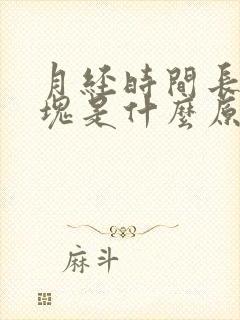 月经時間長
塊是什麼原
麻斗